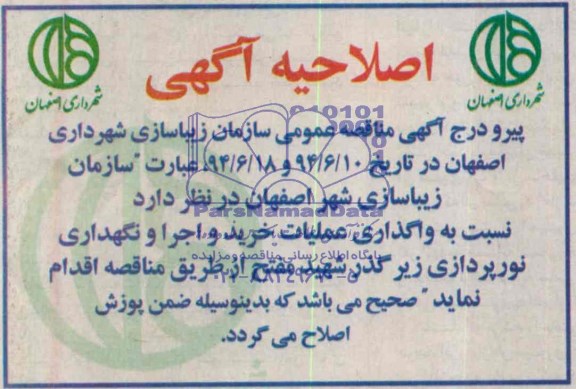 اصلاحیه آگهی
شهرداری اصفهان
شهرداری اصفهان
پیرو درج آگهی مناقصه عمومی سازمان زیباسازی شهرداری
اصفهان در تاریخ ۹۴/۶/۱۰ و ۹۴/۶/۱۸، عبارت "سازمان
زیباسازی شهر اصفهان در نظر دارد
ParsNamadData
نسبت به واگذاری عملیات خرید و اجرا و نگهداری
پایگاه اطلاع رسانی مناقصه و مزایده
نورپردازی زیر گذر شهید مفتح از طریق مناقصه اقدام
نماید" صحیح می باشد که بدینوسیله ضمن پوزش
اصلاح می گردد.